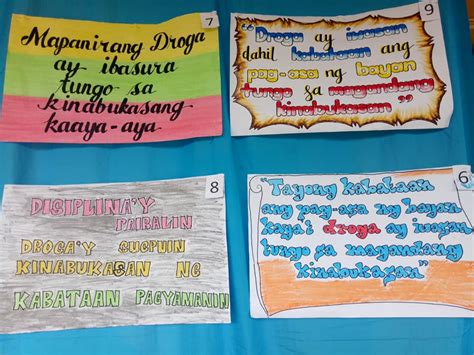 7
Mapanirang Droga
ay ibasura
tungo sa
kinabukasang
kaaya-aya
9
"Droga ay iwasan
dahil kabataan ang
pag-asa ng bayan
tungo sa magandang
kinabukasan"
8
DISIPLINA'Y
PAIRALIN
DROGA'Y SUGPUIN
KINABUKASAN NG
KABATAAN PAGYAMANIN
6
"Tayong kabataan
ang pag-asa ng bayan
kaya't droga ay iwasan
tungo sa magandang
kinabukasan"